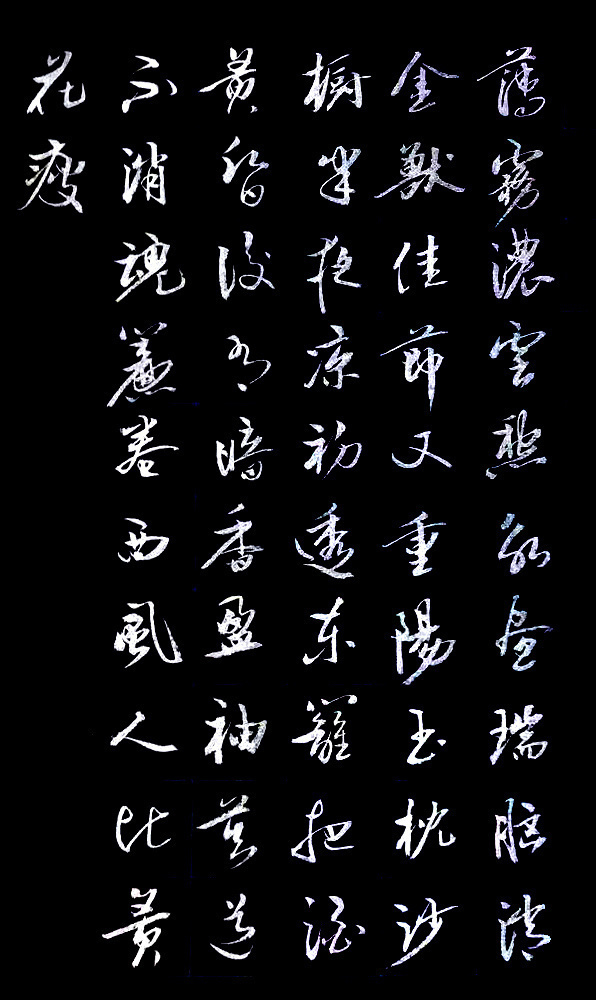 薄霧濃雲愁永晝瑞腦消
金獸佳節又重陽玉枕沙
橱半夜凉初透东籬把酒
黃昏後有暗香盈袖莫道
不消魂簾卷西風人比黃
花瘦